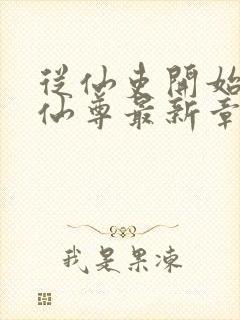 從仙吏開始
仙尊最新章
我是果凍